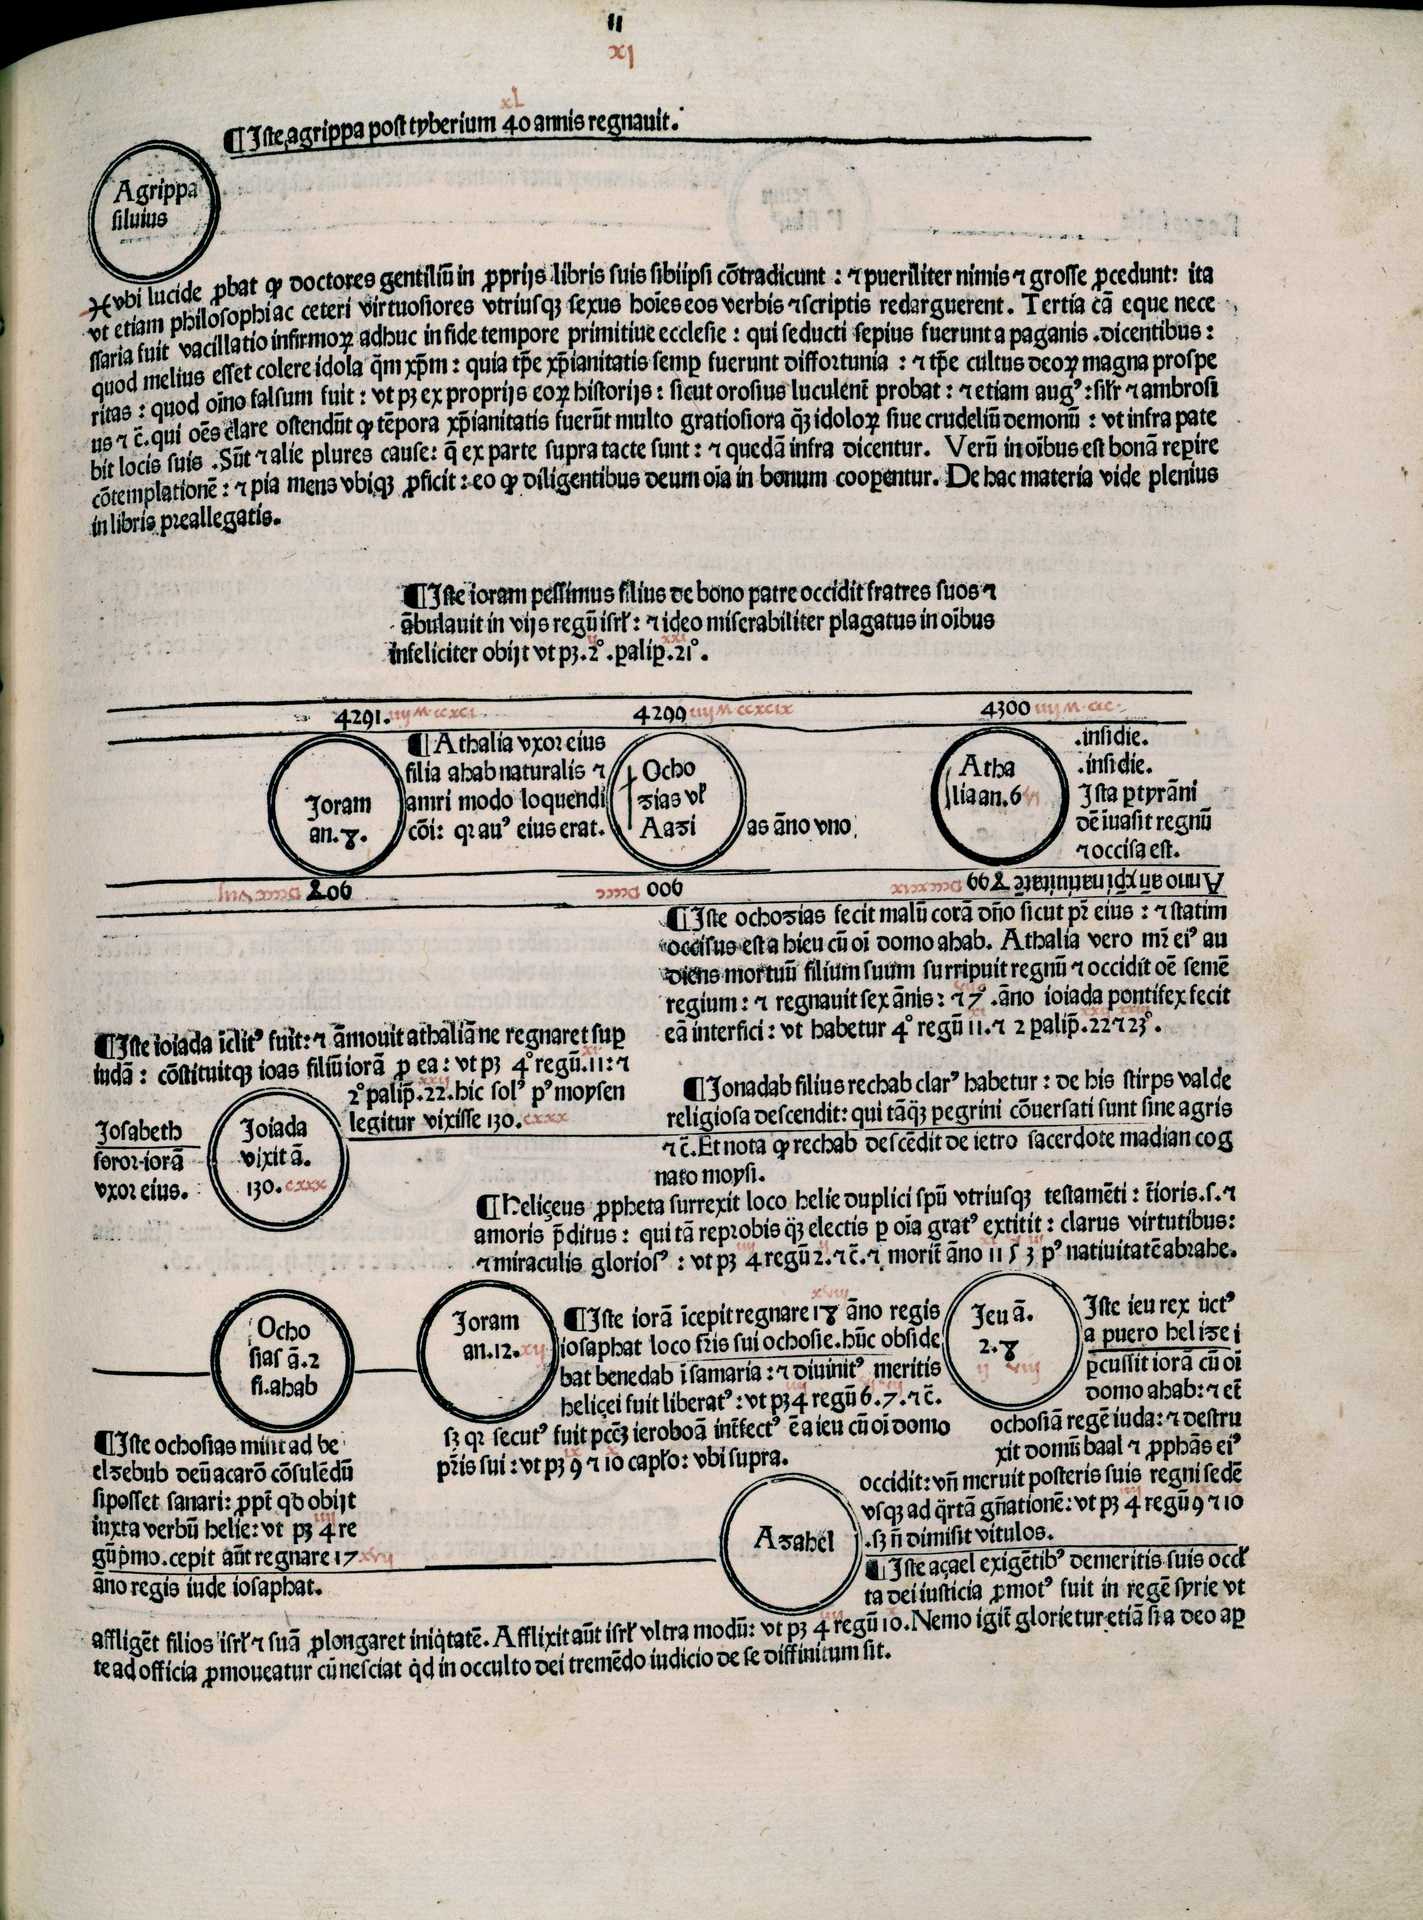 11
xj
xl
¶Iste agrippa post tyberium 40 annis regnauit.
Agrippa
siluius
vbi lucide ꝓbat ꝙ doctores gentiliū in ꝓprijs libris suis sibiipsi cōtradicunt : ⁊ pueriliter nimis ⁊ grosse ꝓcedunt: ita
vt etiam philosophi ac ceteri virtuosiores vtriusqꝫ sexus hoīes eos verbis ⁊ scriptis redarguerent. Tertia cā eque nece
ssaria fuit vacillatio infirmoꝝ adhuc in fide tempore primitiue ecclesie : qui seducti sepius fuerunt a paganis .dicentibus :
quod melius esset colere idola q̄m xp̄m : quia tp̄e xp̄ianitatis semꝑ fuerunt diffortunia : ⁊ tp̄e cultus deoꝝ magna prospe
ritas : quod oīno falsum fuit : vt pꝫ ex proprijs eoꝝ historijs : sicut orosius luculent̄ probat : ⁊ etiam augꝰ : silr̄ ⁊ ambrosi
us ⁊ c̄. qui oēs clare ostendūt ꝙ tēpora xp̄ianitatis fuerūt multo gratiosiora q̄ꝫ idoloꝝ siue crudeliū demonū : vt infra pate
bit locis suis .Sūt ⁊ alie plures cause: q̄ ex parte supra tacte sunt : ⁊ quedā infra dicentur. Verū in oībus est bonā reꝑire
cōtemplationē : ⁊ pia mens vbiqꝫ ꝓficit : eo ꝙ diligentibus deum oīa in bonum cooꝑentur. De hac materia vide plenius
in libris preallegatis.
¶Iste ioram pessimus filius de bono patre occidit fratres suos ⁊
ābulauit in vijs regū isrł : ⁊ ideo miserabiliter plagatus in oībus
infeliciter obijt vt pꝫ .2°. ꝑaliꝑ .21°.
4291. iiijM ccxci 4299 iiijM ccxcix 4300 iiijM ccc
Joram
an. 8.
¶Athalia vxor eius
filia ahab naturalis ⁊
amri modo loquendi
cōi: qꝛ auꝰ eius erat.
Ocho
zias vł
Aazi
as āno vno
Atha
lia an. 6 vj
.insidie.
.insidie.
Ista ꝑ tyrāni
dē iuasit regnū
⁊ occisa est.
Anno an̄ xp̄i natiuitatē 899
900
908
¶Iste ochozias fecit malū corā dn̄o sicut pr̄ eius : ⁊ statim
occisus est a hieu cū oī domo ahab. Athalia vero mr̄ eiꝰ au
diens mortuū filium suum surripuit regnū ⁊ occidit oē semē
regium : ⁊ regnauit sex ānis : ⁊ 7 .āno ioiada pontifex fecit
eā interfici : vt habetur 4° regū 11. ⁊ 2 ꝑalip̄. 22 ⁊ 23°.
¶Iste ioiada īclitꝰ fuit: ⁊ āmouit athaliā ne regnaret suꝑ
iudā : cōstituitqꝫ ioas filiū iorā ꝓ ea : vt pꝫ 4° regū.11: ⁊
2° ꝑalip̄.22. hic solꝰ pꝰ moysen
legitur vixisse 130. cxxx
Josabeth
soror iorā
vxor eius.
Joiada
vixit ā.
130. cxxx
¶Jonadab filius rechab clarꝰ habetur : de his stirps valde
religiosa descendit: qui tāq̄ꝫ pegrini cōuersati sunt sine agris
⁊ c̄. Et nota ꝙ rechab descēdit de ietro sacerdote madian cog
nato moysi.
¶Heliçeus ꝓpheta surrexit loco helie duplici spū vtriusqꝫ testamēti : t̄ioris.s. ⁊
amoris p̄ditus : qui tā reprobis q̄ꝫ electis ꝑ oīa gratꝰ extitit : clarus virtutibus:
⁊ miraculis gloriosꝰ : vt pꝫ 4 regū 2. ⁊ c̄. ⁊ morit̄ āno 1153 pꝰ natiuitatē abrahe.
Ocho
sias ā. 2
fi. ahab
Joram
an. 12. xij
¶Iste iorā īcepit regnare 18 āno regis
iosaphat loco fr̄is sui ochosie. hūc obside
bat benedab ī samaria : ⁊ diuinitꝰ meritis
heliçei fuit liberatꝰ : vt pꝫ 4 regū 6. 7. ⁊ c̄.
sꝫ qꝛ secutꝰ fuit pcc̄ꝫ ieroboā int̄fectꝰ ē a ieu cū oī domo
pr̄is sui : vt pꝫ 9 ⁊ 10 capło : vbi supra.
Jeu ā.
2. 8
Iste ieu rex ūctꝰ
a puero helizei
ꝑcussit iorā cū oī
domo ahab: ⁊ et̄
ochosiā regē iuda: ⁊ destru
xit domū baal ⁊ ꝓphās eiꝰ
occidit : vn̄ meruit posteris suis regni sedē
vsqꝫ ad q̄rtā gn̄ationē: vt pꝫ 4 regū 9 ⁊ 10
.sꝫ n̄ dimisit vitulos.
¶Iste ochosias misit ad be
elzebub deū acarō cōsulēdū
si posset sanari : ꝓpt̄ qd obijt
iuxta verbū helie: vt pꝫ 4 re
gū pmo. cepit aūt regnare 17 xvij
āno regis iude iosaphat.
Azahel
¶Iste açael exigētibꝰ demeritis suis occł
ta dei iusticia ꝓmotꝰ fuit in regē syrie vt
affligēt filios isrł ⁊ suā ꝓlongaret iniq̄tatē. Afflixit aūt isrł vltra modū: vt pꝫ 4 regū 10. Nemo igit̄ glorietur etiā si a deo aꝑ
te ad officia ꝓmoueatur cū nesciat q̄d in occulto dei tremēdo iudicio de se diffinitum sit.